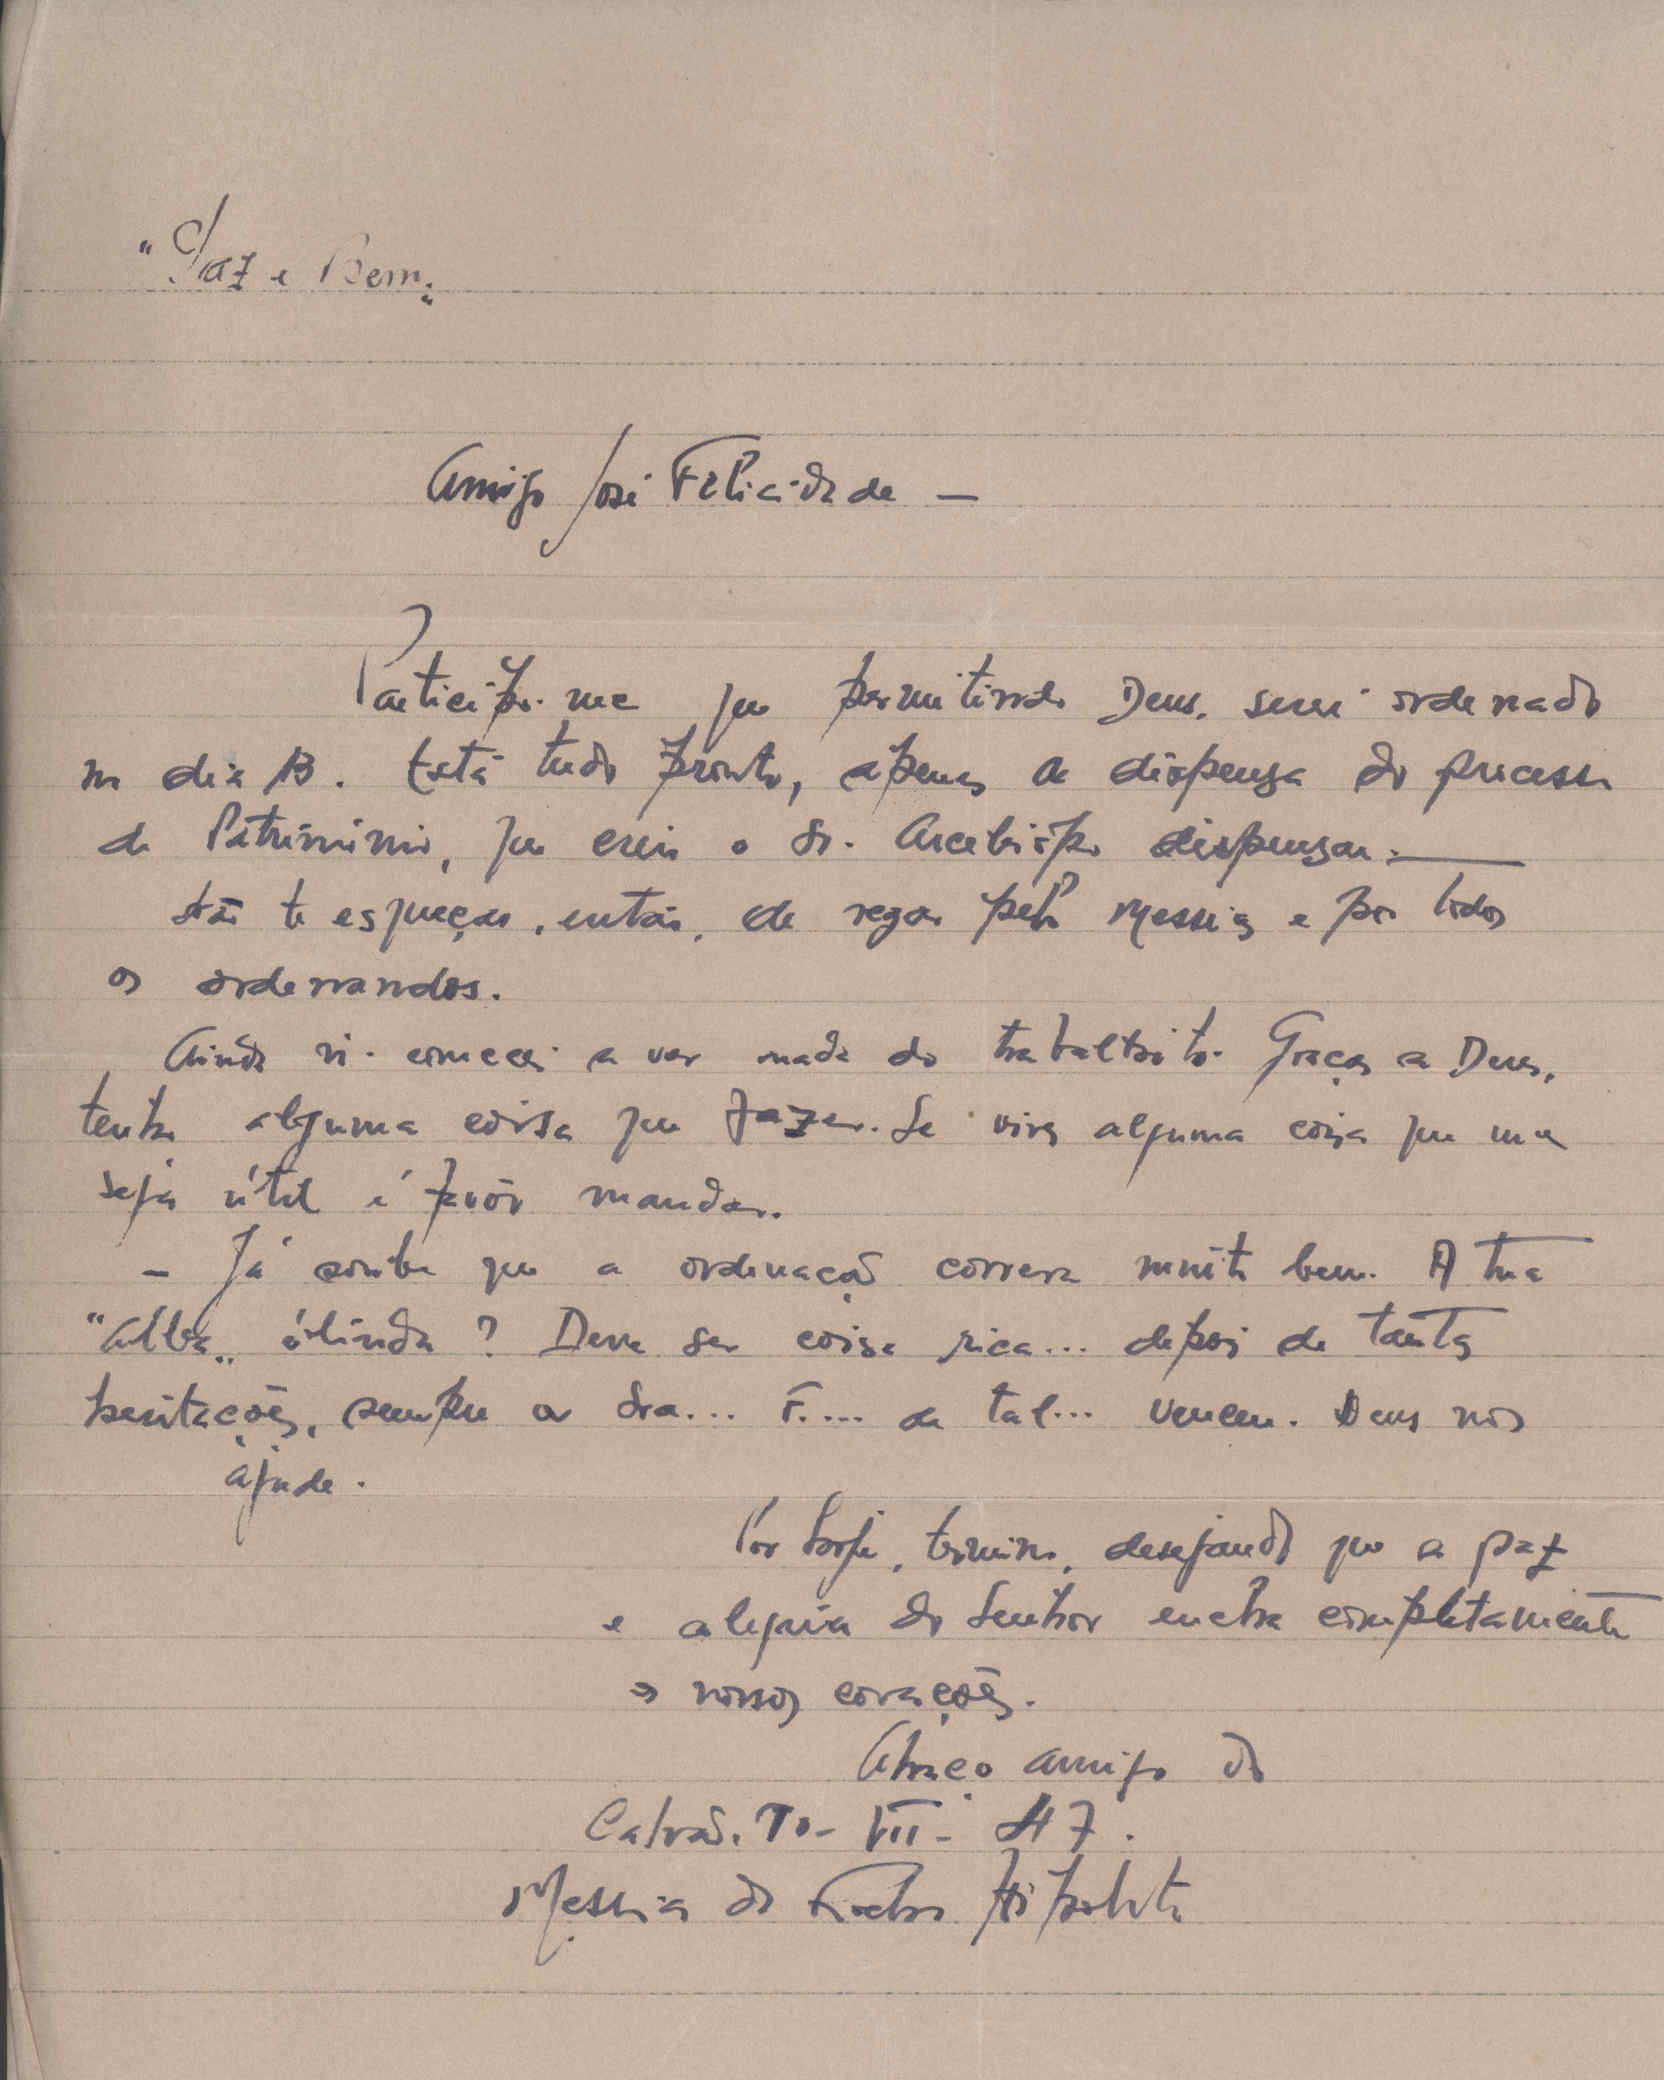 "Paz e Bem"
Amigo José Felicidade —
Participo-me que permitindo Deus, serei ordenado
no dia 13. Está tudo pronto, apenas a dispensa do processo
de Património, que creio o Sr. Arcebispo dispensar.—
Não te esqueças, então, de rezar pelo Messias e por todos
os ordenandos.
Ainda n. comecei a ver nada do trabalhito. Graças a Deus,
tenho alguma coisa que fazer. Se vires alguma coisa que me
seja útil é favor mandar.
– Já soube que a ordenação correra muito bem. A tua
"alba" é linda? Deve ser coisa rica... depois de tantas
hesitações, sempre a Sra... F.... de tal... venceu. Deus nos
ajude.
Por hoje, termino, desejando que a paz
e alegria do Senhor encha completamente
os nossos corações.
Abraço amigo do
Calvão. 10- VII- 47.
Messias da Rocha Hipólito